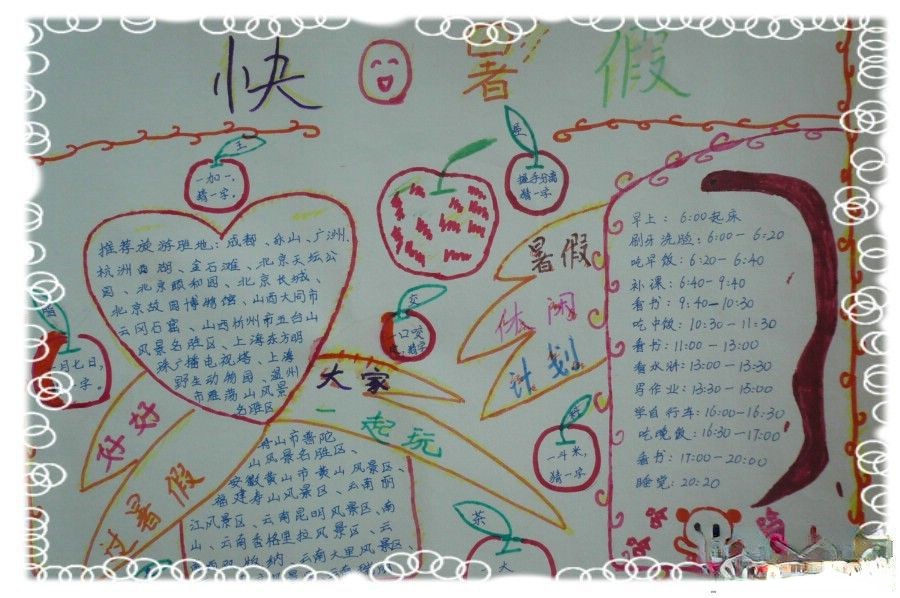 快 暑 假
王
一加一,
猜一字。
握手分离
猜一字
推荐旅游胜地:成都、乐山、广州、
杭州西湖、金石滩、北京天坛公
园、北京颐和园、北京长城、
北京故园博物馆、山西大同市
云冈石窟、山西忻州市五台山
风景名胜区、上海东方明
珠广播电视塔、上海
野生动物园、温州
市雁荡山风景
名胜区
月七日,
一字。
交
一口咬
猜字
暑假
休闲
计划
大家
一起玩
好好
过暑假
舟山市普陀
山风景名胜区、
安徽黄山市黄山风景区、
福建寿山风景区、云南丽
江风景区、云南昆明风景区、南
山、云南香格里拉风景区、云
纳、云南大里风景区、
一斗米,
猜一字
茶
大
早上: 6:00起床
刷牙洗脸:6:00-6:20
吃早饭:6:20-6:40
补课:6:40-9:40
看书:9:40-10:30
吃中饭:10:30-11:30
看书:11:00-13:00
看水浒:13:00-13:30
写作业:13:30-15:00
学自行车:16:00-16:30
吃晚饭:16:30-17:00
看书:17:00-20:00
睡觉:20:20